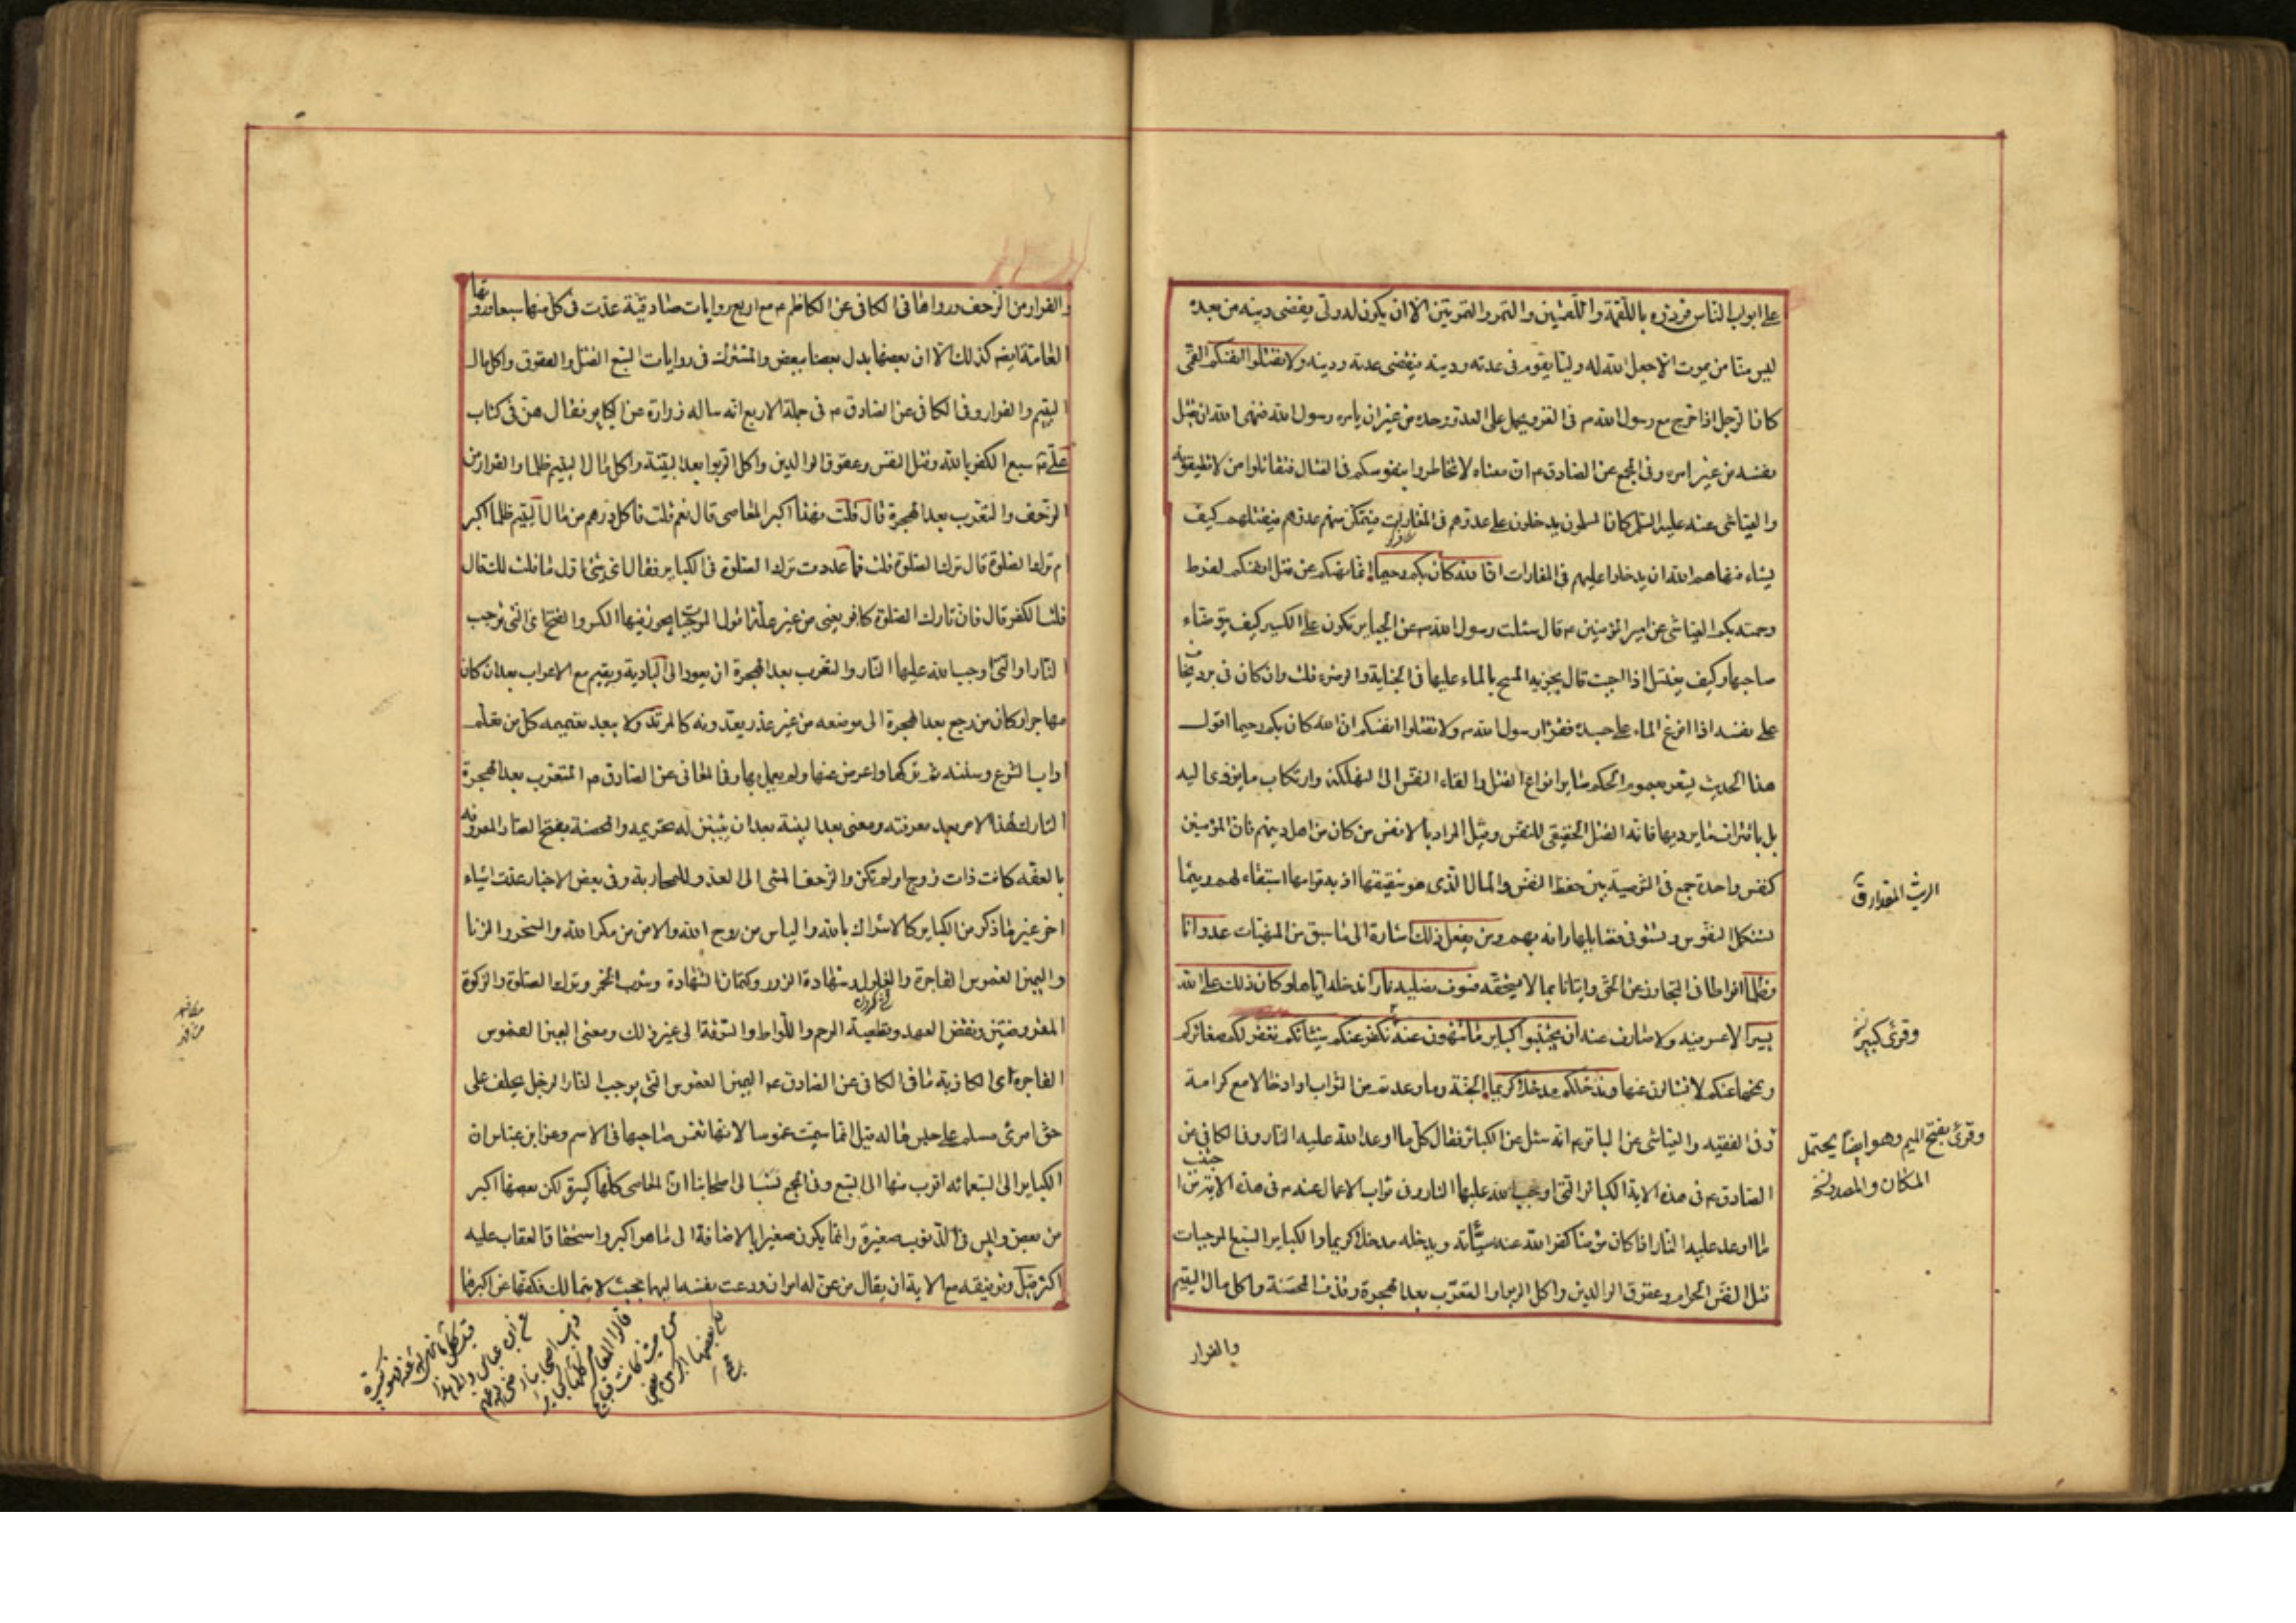 على ابواب الناس فردوه باللقمة واللقمتين والتمر والتمرتين الا ان يكون له ولي يقضى دينه من بعده
ليس منا من يموت الا جعل الله له وليا يقوم فى عدته ودينه فيقضى عدته ودينه ولا تقتلوا انفسكم القمى
كان الرجل اذا خرج مع رسول الله ص فى الغزو يحمل على العدو وحده من غير ان يامره رسول الله فنهى الله ان يقتل
نفسه من غير امره وفى المجمع عن الصادق ع ان معناه لا تخاطروا بنفوسكم فى القتال فتقاتلوا من لا تطيقونه
والعياشى عنه عليه السلم كان المسلمون يدخلون على عدوهم فى المغارات فيتمكن منهم عدوهم فيقتلهم كيف
يشاء فنهاهم الله ان يدخلوا عليهم فى المغارات ان الله كان بكم رحيما انما نهيكم عن قتل انفسكم لفرط
رحمته بكم العياشى عن امير المؤمنين ع قال سئلت رسول الله ص عن الجباير تكون على الكسير كيف يتوضاء
صاحبها وكيف يغتسل اذا اجنب قال يجزيه المسح بالماء عليها فى الجنابة والوضوء قلت وان كان فى برد يخاف
على نفسه اذا افرغ الماء على جسده فقرأ رسول الله ص ولا تقتلوا انفسكم ان الله كان بكم رحيما اقول
هذا الحديث يشعر بعموم الحكم ساير انواع القتل والقاء النفس الى التهلكة وارتكاب ما يؤدى اليه
بل باقتراف ما يرديها فانه القتل الحقيقى للنفس وقيل المراد بالانفس من كان من اهل دينهم فان المؤمنين
كنفس واحدة جمع فى التوصية بين حفظ النفس والمال الذى هو شقيقها اذ به قوامها استبقاء لهم ريثما
تستكمل النفوس وتستوفى فضايلها رافه بهم ومن يفعل ذلك اشارة الى ما سبق من المنهيات عدوانا
وظلما افراطا فى التجاوز عن الحق واتيانا بما لا يستحقه فسوف نصليه نارا ندخله اياها وكان ذلك على الله
يسيرا لا عسر فيه ولا صارف عنه ان تجتنبوا كباير ما تنهون عنه نكفر عنكم سيئاتكم نغفر لكم صغائركم
ونمحها عنكم لا تسئالون عنها وندخلكم مدخلا كريما الجنة وما وعدتم من الثواب او ادخالا مع كرامة
وفى الفقيه والعياشى عن الباقر ع انه سئل عن الكبائر فقال كل ما اوعد الله عليه النار وفى الكافى عن
الصادق ع فى هذه الاية الكبائر التى اوجب الله عليها النار وفى ثواب الاعمال عنه ع فى هذه الاية من ا
جتنب
ما اوعد عليه النار اذا كان مؤمنا كفر الله عنه سيئاته ويدخله مدخلا كريما والكباير السبع الموجبات
قتل النفس الحرام وعقوق الوالدين واكل الربوا والتعرب بعد الهجرة وقذف المحصنة واكل مال اليتيم
والفرار
الريث المقدار ق
وقرئ كبير
وقرئ بفتح الميم وهو ايضا يحتمل
المكان والمصدر
والفرار من الزحف ورواها فى الكافى عن الكاظم ع مع اربع روايات صادقية عدت فى كل منها سبعا وروتها
العامة ايضه كذلك الا ان بعضها بدل بعضا ببعض والمشترك فى روايات السبع القتل والعقوق واكل مال
اليتيم والفرار وفى الكافى عن الصادق ع فى جملة الاربع انه ساله زرارة عن الكباير فقال هن فى كتاب
على ع سبع الكفر بالله وقتل النفس وعقوق الوالدين واكل الربوا بعد البينة واكل مال اليتيم ظلما والفرار من
الزحف والتعرب بعد الهجرة قال قلت فهذا اكبر المعاصى قال نعم قلت فاكل درهم من مال اليتيم ظلما اكبر
ام ترك الصلوة قال ترك الصلوة قلت فما عددت ترك الصلوة فى الكباير فقال اى شئ اول ما قلت لك قال
قلت الكفر قال فان تارك الصلوة كافر يعنى من غير علة اقول الموجبات يجوز فيها الكسر والفتح اى التى توجب
النار او التى اوجب الله عليها النار والتعرب بعد الهجرة ان يعود الى البادية ويقيم مع الاعراب بعد ان كان
مهاجرا وكان من رجع بعد الهجرة الى موضعه من غير عذر يعدونه كالمرتد ولا يبعد تعميمه كل من تعلم
اداب الشرع وسننه ثم تركها واعرض عنها ولم يعمل بها وفى المعانى عن الصادق ع المتعرب بعد الهجرة
التارك لهذا الامر بعد معرفته ومعنى بعد البينة بعد ان يتبين له تحريمه والمحصنة بفتح الصاد المعروفه
بالعفه كانت ذات زوج او لم تكن والزحف المشى الى العدو للمحاربة وفى بعض الاخبار عدت اشياء
اخر غير ما ذكر من الكباير كالاشراك بالله والياس من روح الله والامن من مكر الله والسحر والزنا
واليمين الغموس الفاجرة والغلول وشهادة الزور وكتمان الشهادة وشرب الخمر وترك الصلوة والزكوة
المفروضتين ونقض العهد وقطيعة الرحم واللواط والسرقة الى غير ذلك ومعنى اليمين الغموس
الفاجرة اى الكاذبة ما فى الكافى عن الصادق ع اليمين الغموس التى يوجب النار الرجل يحلف على
حق امرئ مسلم على حبس ماله قيل انما سميت غموسا لانها تغمس صاحبها فى الاسم وعن ابن عباس ان
الكباير الى السبعمائه اقرب منها الى السبع وفى المجمع نسب الى اصحابنا ان المعاصى كلها كبيرة لكن بعضها اكبر
من بعض وليس فى الذنوب صغيرة وانما يكون صغيرا بالاضافة الى ما هو اكبر واستحقاق العقاب عليه
اكثر قيل وتوفيقه مع الاية ان يقال من عن له امران ودعت نفسه اليهما بحيث لا يتمالك فكفها عن اكبرهما